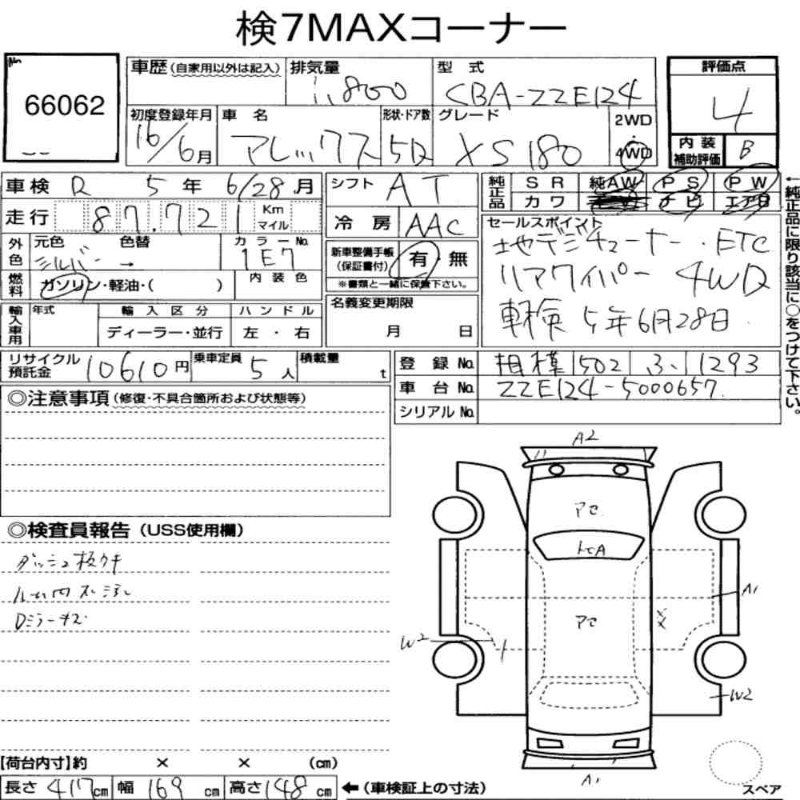 検7MAXコーナー
No.
66062
車歴 (自家用以外は記入)
排気量
1,800
型式
CBA-ZZE124
評価点
4
内装補助評価
B
初度登録年月
16/6月
車名
アレックス
形状・ドア数
5D
グレード
XS180
2WD
4WD
車検 R 5年 6/28月
シフト AT
純正品
SR
純AW
PS
PW
カワ
ナビ
エアB
走行 87.721 Km マイル
冷房 AAC
セールスポイント
地デジチューナー・ETC
リアワイパー 4WD
車検 5年6月28日
←純正品に限り該当に○をつけて下さい。
外色
元色
シルバー
色替
→
カラーNo.
1E7
新車整備手帳
(保証書付)
有・無
※書類と一緒に保管下さい。
燃料
ガソリン・軽油・( )
内装色
名義変更期限
月 日
輸入車用
年式
輸入区分
ディーラー・並行
ハンドル
左・右
リサイクル預託金 10610円
乗車定員 5人
積載量 t
登録No. 相模 1502 ふ 11293
車台No. ZZE124-5000657
シリアルNo.
◎注意事項 (修復・不具合箇所および状態等)
◎検査員報告 (USS使用欄)
ダッシュ板ウキ
ルーム内スレ、汚れ
Dミラーキズ
A2
アセ
トビA
アセ
A1
W2
W2
A1
スペア
【荷台内寸】約 × × (cm)
長さ 417cm 幅 169cm 高さ 148cm ←(車検証上の寸法)